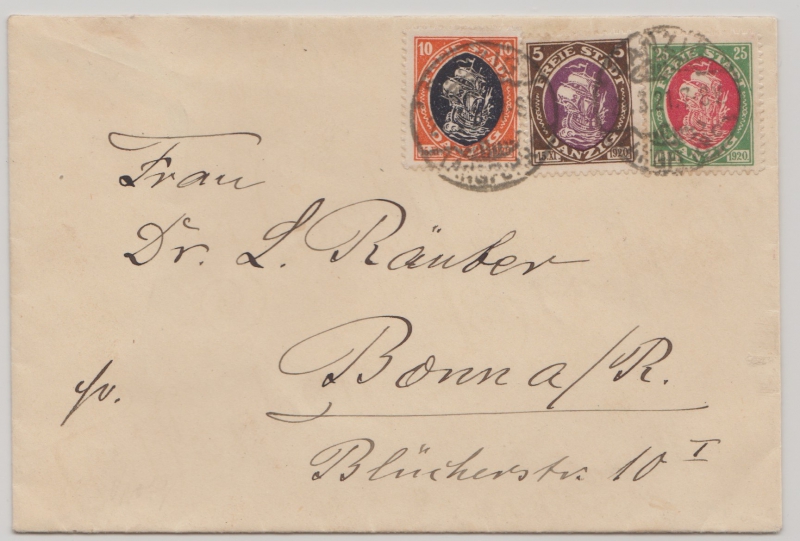 10 10
FREIE STADT
DANZIG
5 5
FREIE STADT
DANZIG
15 XI 1920
25 25
FREIE STADT
DANZIG
1920
Frau
Dr. L. Räuber
Bonn a/R.
Blücherstr. 10 I